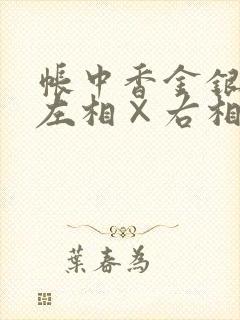 帳中香金銀
左相×右相
葉春為